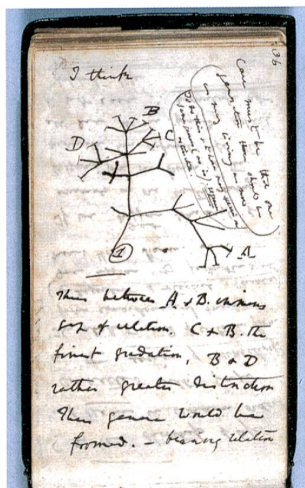 I think
B
C
D
A
1
36
Case must be that one
generation then should be
as many living as now
To do this & to have many species in
same genus (as is) requires
extinction.
Thus between A & B. immens
gap of relation. C & B. the
finest gradation, B & D
rather greater distinction
Thus genera would be
formed. — bearing relation